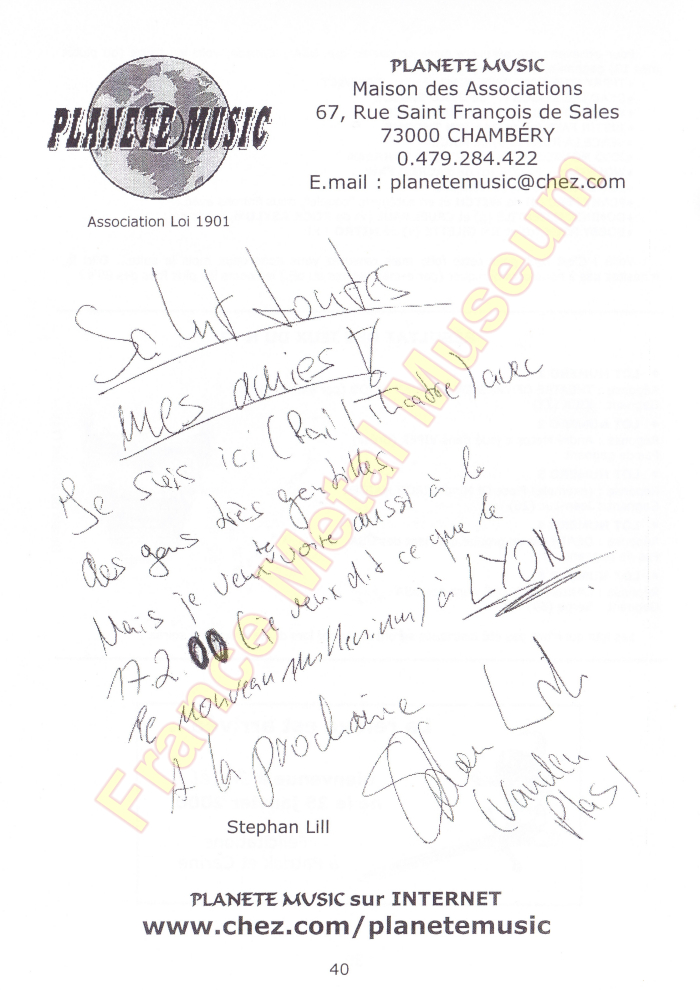 PLANETE MUSIC
Association Loi 1901
PLANETE MUSIC
Maison des Associations
67, Rue Saint François de Sales
73000 CHAMBÉRY
0.479.284.422
E.mail : planetemusic@chez.com
Salut toutes
mes amies !
Je suis ici (Pfalztheatre) avec
des gens très gentilles.
Mais je veux te voire aussi à le
17.2.00 (je veux dit ce que le
le nouveau millenium) à LYON
A la prochaine
Stephan Lill
(Vanden
Plas)
Stephan Lill
France Metal Museum
PLANETE MUSIC sur INTERNET
www.chez.com/planetemusic
40